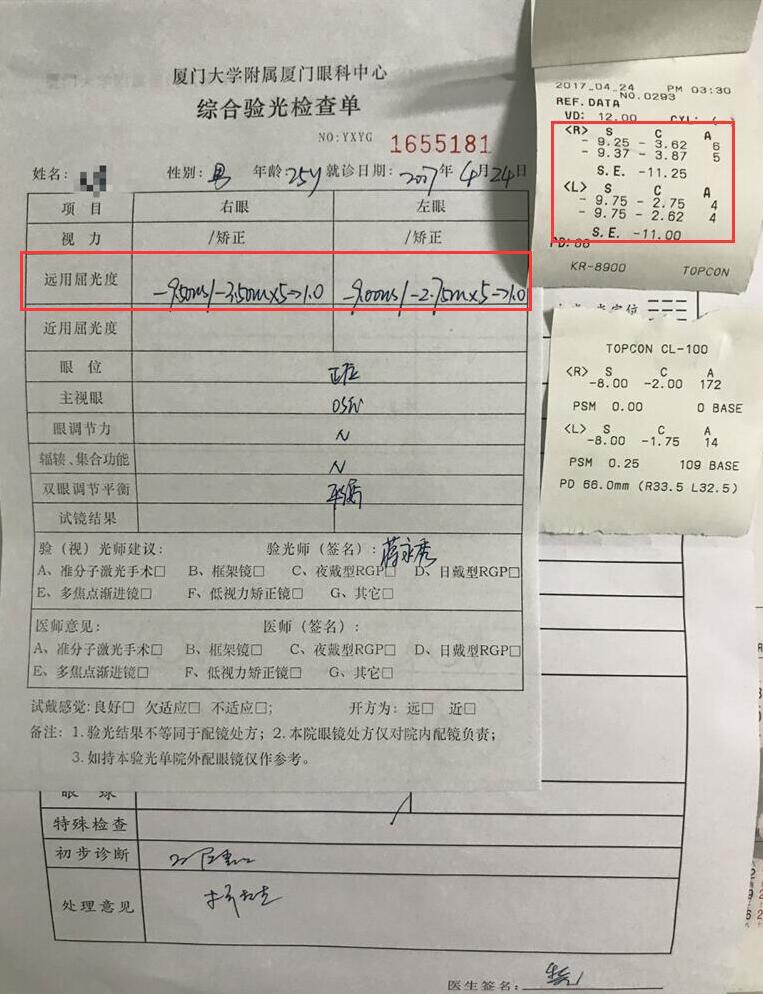 厦门大学附属厦门眼科中心
综合验光检查单
NO:YXYG 1655181
姓名: 性别: 男 年龄: 25y 就诊日期: 2017年4月24日
项目 右眼 左眼
视力 /矫正 /矫正
远用屈光度 -9.50DS/-3.50DC×5→1.0 -9.00DS/-2.75DC×5→1.0
近用屈光度
眼位 正位
主视眼
眼调节力 N
辐辏、集合功能 N
双眼调节平衡 平衡
试镜结果
验(视)光师建议: 验光师(签名):
A、准分子激光手术□ B、框架镜□ C、夜戴型RGP□ D、日戴型RGP□
E、多焦点渐进镜□ F、低视力矫正镜□ G、其它□
医师意见: 医师(签名):
A、准分子激光手术□ B、框架镜□ C、夜戴型RGP□ D、日戴型RGP□
E、多焦点渐进镜□ F、低视力矫正镜□ G、其它□
试戴感觉:良好□ 欠适应□ 不适应□; 开方为: 远□ 近□
备注: 1.验光结果不等同于配镜处方; 2.本院眼镜处方仅对院内配镜负责;
3.如持本验光单院外配眼镜仅作参考。
特殊检查
初步诊断
处理意见
医生签名:
2017_04_24 PM 03:30
NO.0293
REF.DATA
VD: 12.00 CYL:
<R> S C A
- 9.25 - 3.62 6
- 9.37 - 3.87 5
S.E. -11.25
<L> S C A
- 9.75 - 2.75 4
- 9.75 - 2.62 4
S.E. -11.00
PD: 66
KR-8900 TOPCON
TOPCON CL-100
<R> S C A
-8.00 -2.00 172
PSM 0.00 0 BASE
<L> S C A
-8.00 -1.75 14
PSM 0.25 109 BASE
PD 66.0mm (R33.5 L32.5)